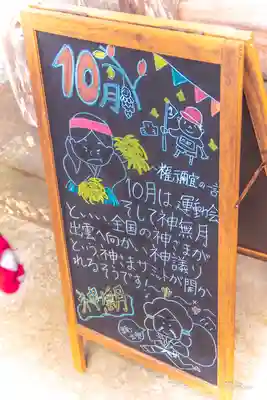 10月
権禰宜の言
10月は、運動会
そして神無月
といい、全国の神さまが
出雲へ向かい、神議り
という神さまサミットが開か
れるそうです!